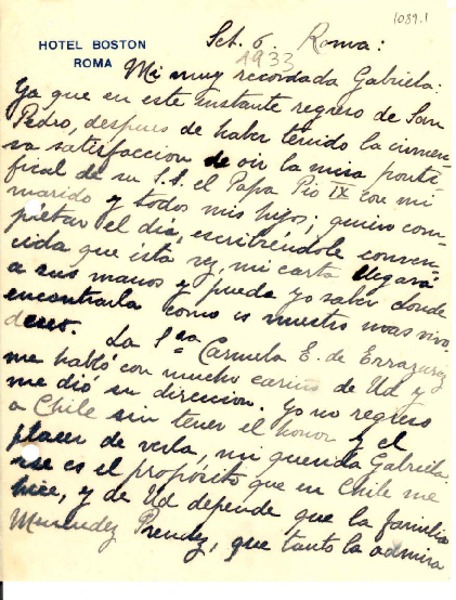 1089.1
HOTEL BOSTON
ROMA
Set. 6. Roma:
1933
Mi muy recordada Gabriela:
Ya que en este instante regreso de San
Pedro, despues de haber tenido la inmen-
sa satisfaccion de oir la misa ponti-
fical de su S.S. el Papa Pio IX con mi
marido y todos mis hijos; quiero com-
pletar el dia, escribiéndole conven-
cida que ésta vez, mi carta llegará
a sus manos y pueda yo saber donde
encontrarla como es nuestro mas vivo
deseo. La Sra Carmela E. de Errazuriz
me habló con mucho cariño de Ud y
me dió su direccion. Yo no regreso
a Chile sin tener el honor y el
placer de verla, mi querida Gabriela.
ese es el propósito que en Chile me
hice, y de Ud depende que la familia
Menendez Prendez, que tanto la admira